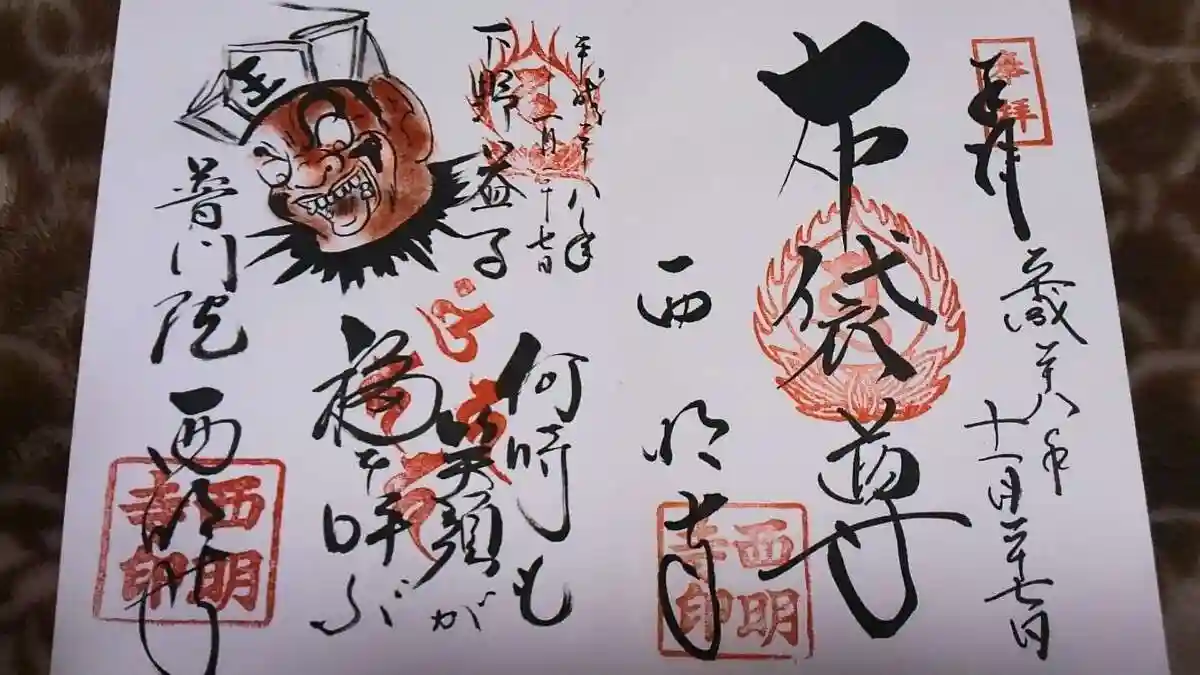 奉拝
奉拝
平成二十八年
十一月二十七日
布袋尊
西明寺
西明寺印
平成二十八年
十一月二十七日
下野益子
何時も
笑顔が
福を呼ぶ
王
普門院
西明寺
西明寺印